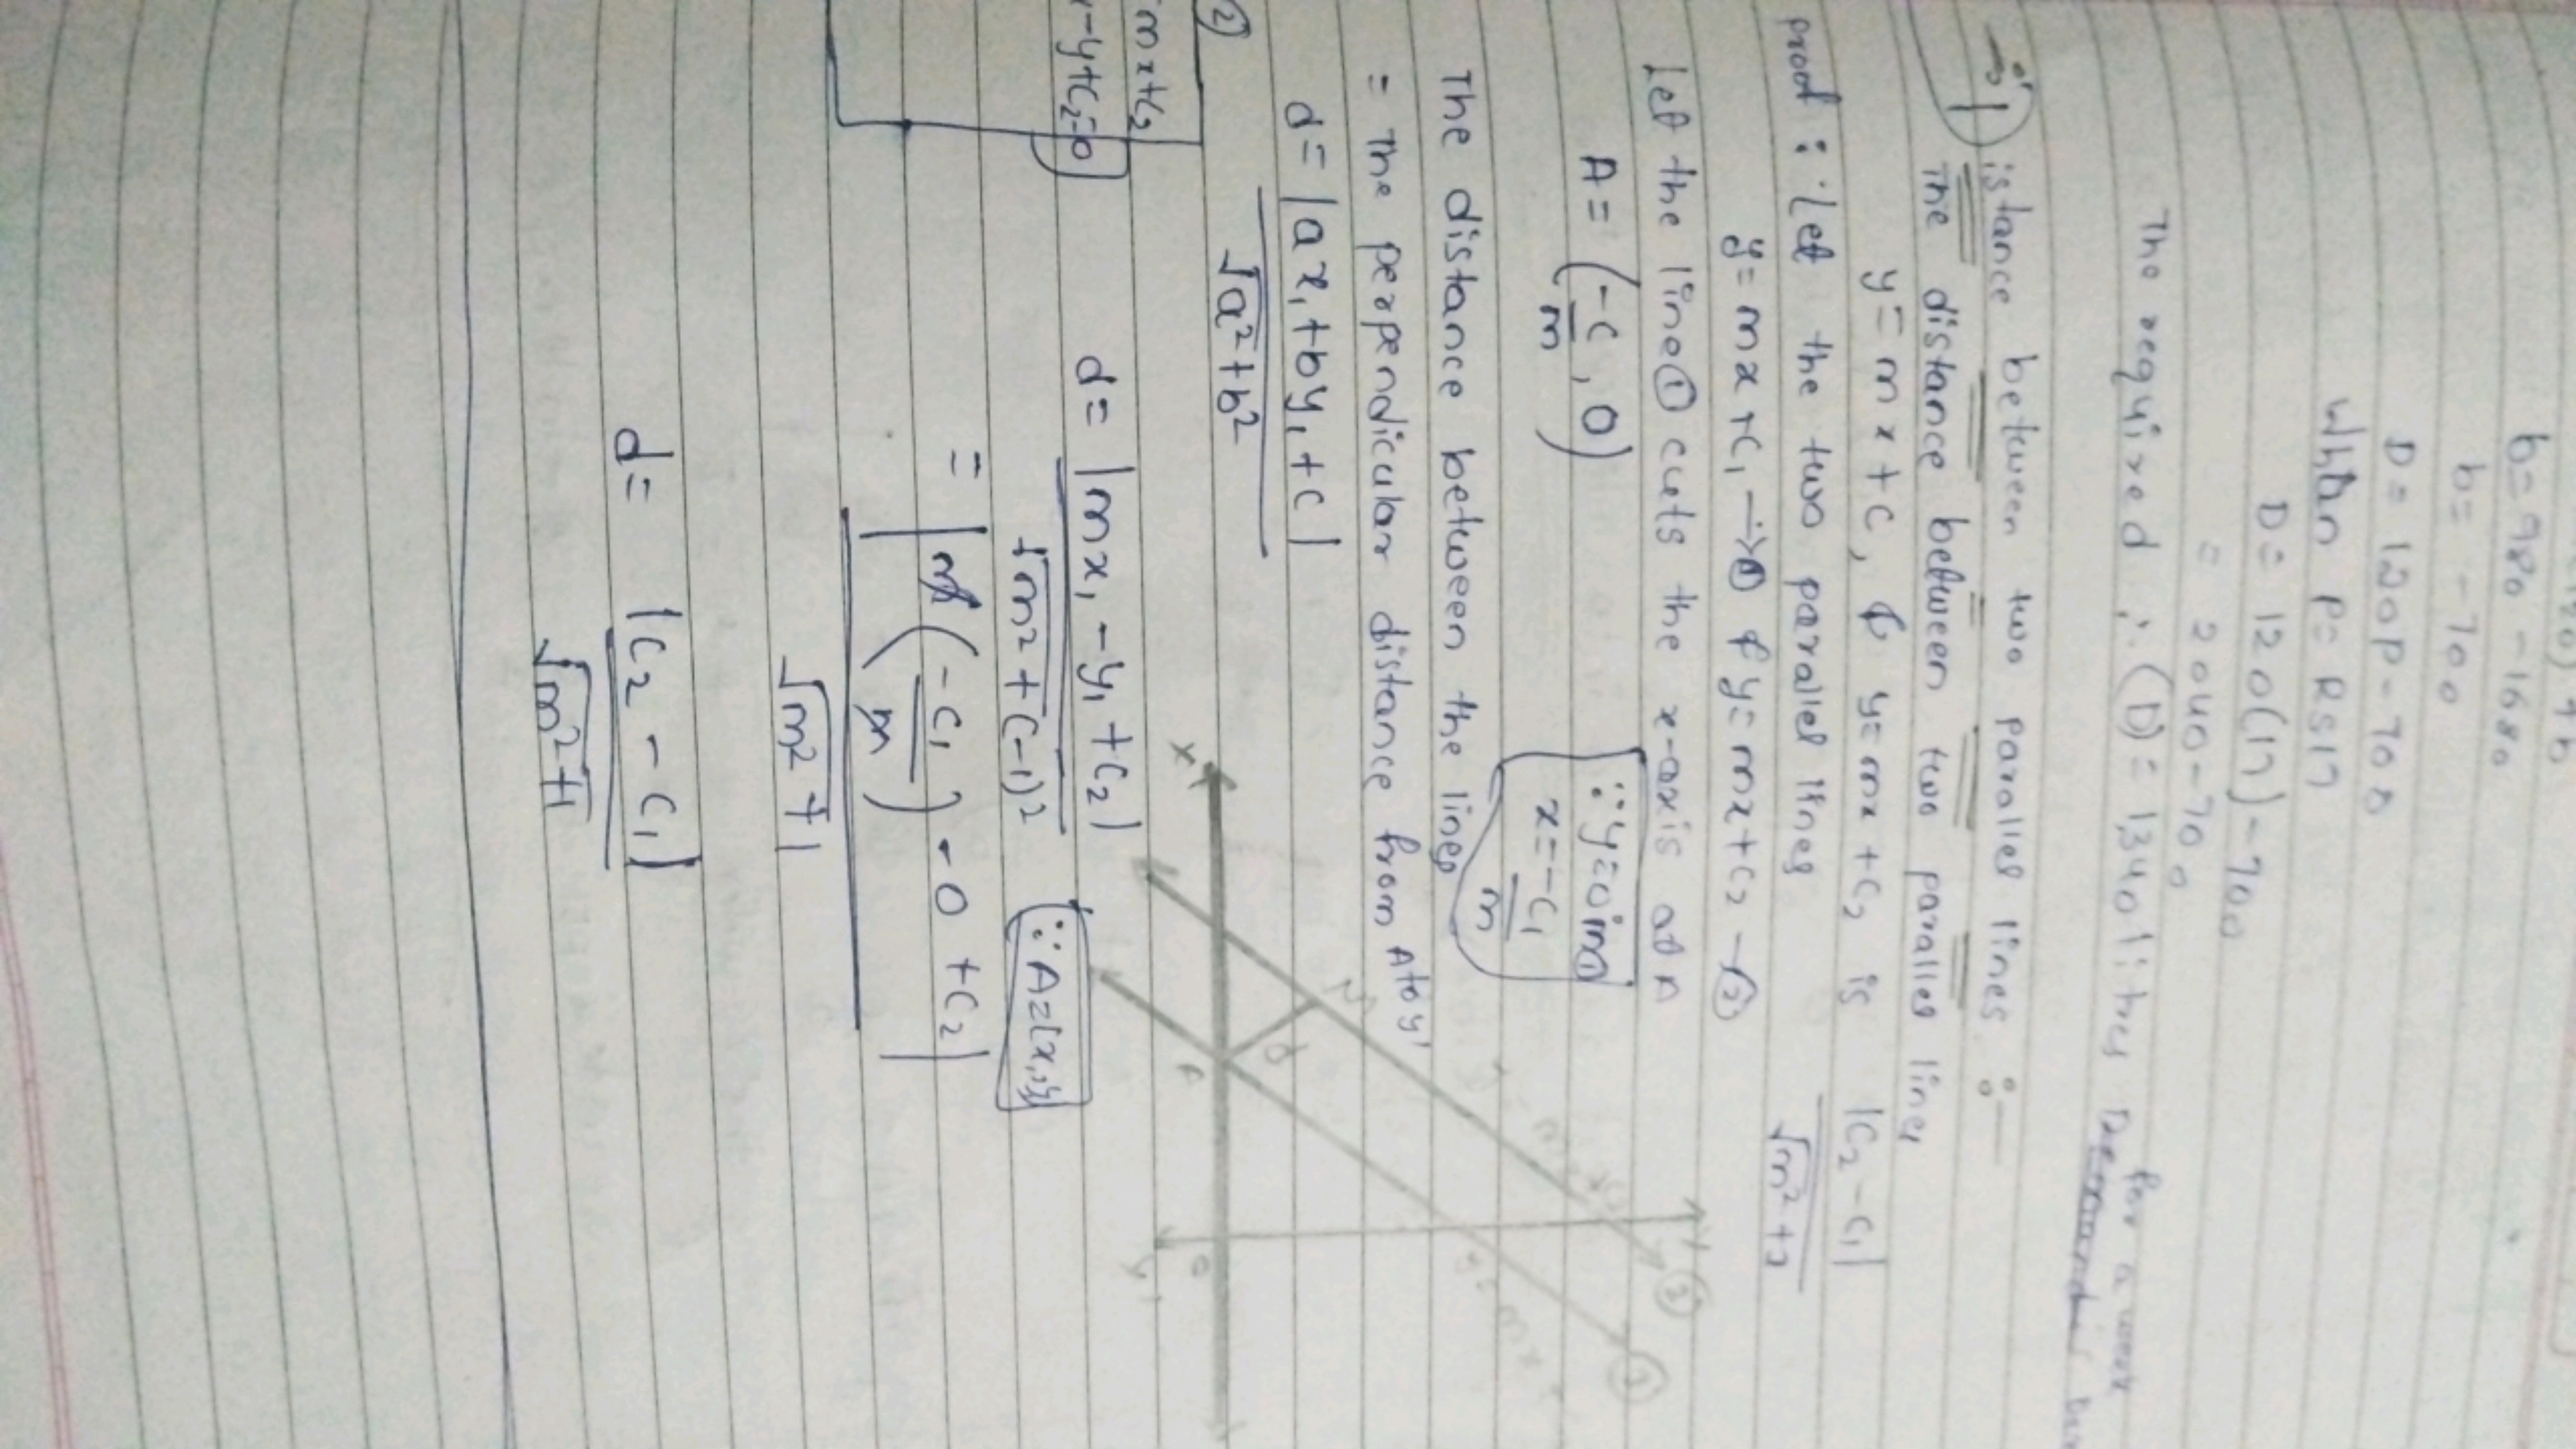 b = 980 - 1680
b = -700
D = 120P - 700
When P = Rs 17
D = 120(17) - 700
= 2040 - 700
The required ∴ (D) = 1340 litres
For a week
Distance between two parallel lines :-
The distance between two parallel lines
y = mx + c, & y = mx + c₂ is |c₂ - c₁|
√m² + 1
proof : Let the two parallel lines
y = mx + c₁ → ① & y = mx + c₂ → ②
Let the line ① cuts the x-axis at A
A = (-c/m, 0)
∵ y = 0 in ①
x = -c₁/m
The distance between the lines
= The perpendicular distance from A to y'
d = |ax₁ + by₁ + c|
√a² + b²
②
mx + c₂
-y + c₂ = 0
d = |mx₁ - y₁ + c₂|
√m² + (-1)²
∵ A = (x₁, y₁)
= |m(-c₁/m) - 0 + c₂|
√m² + 1
d = |c₂ - c₁|
√m² + 1